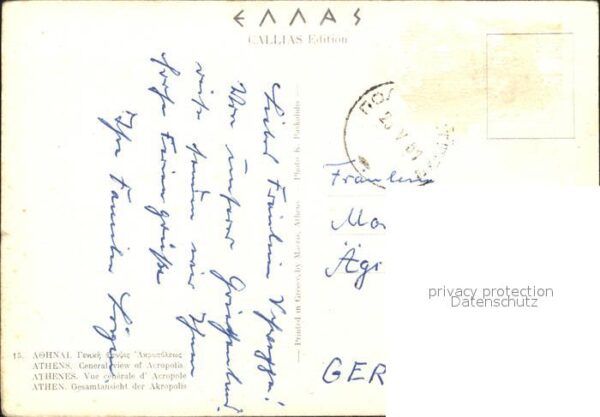 ΕΛΛΑΣ
CALLIAS Edition
Liebes Fräulein
Von unserer Griechenland
reise senden wir Ihnen
Feriengrüße
Ihre Familie
— Printed in Greece, by Macro, Athens — Photo K.
Fräulein
Mo
Ägi
GER
privacy protection
Datenschutz
15. ΑΘΗΝΑΙ. Γενική ἄποψις Ἀκροπόλεως
ATHENS. General view of Acropolis
ATHENES. Vue générale d' Acropole
ATHEN. Gesamtansicht der Akropolis